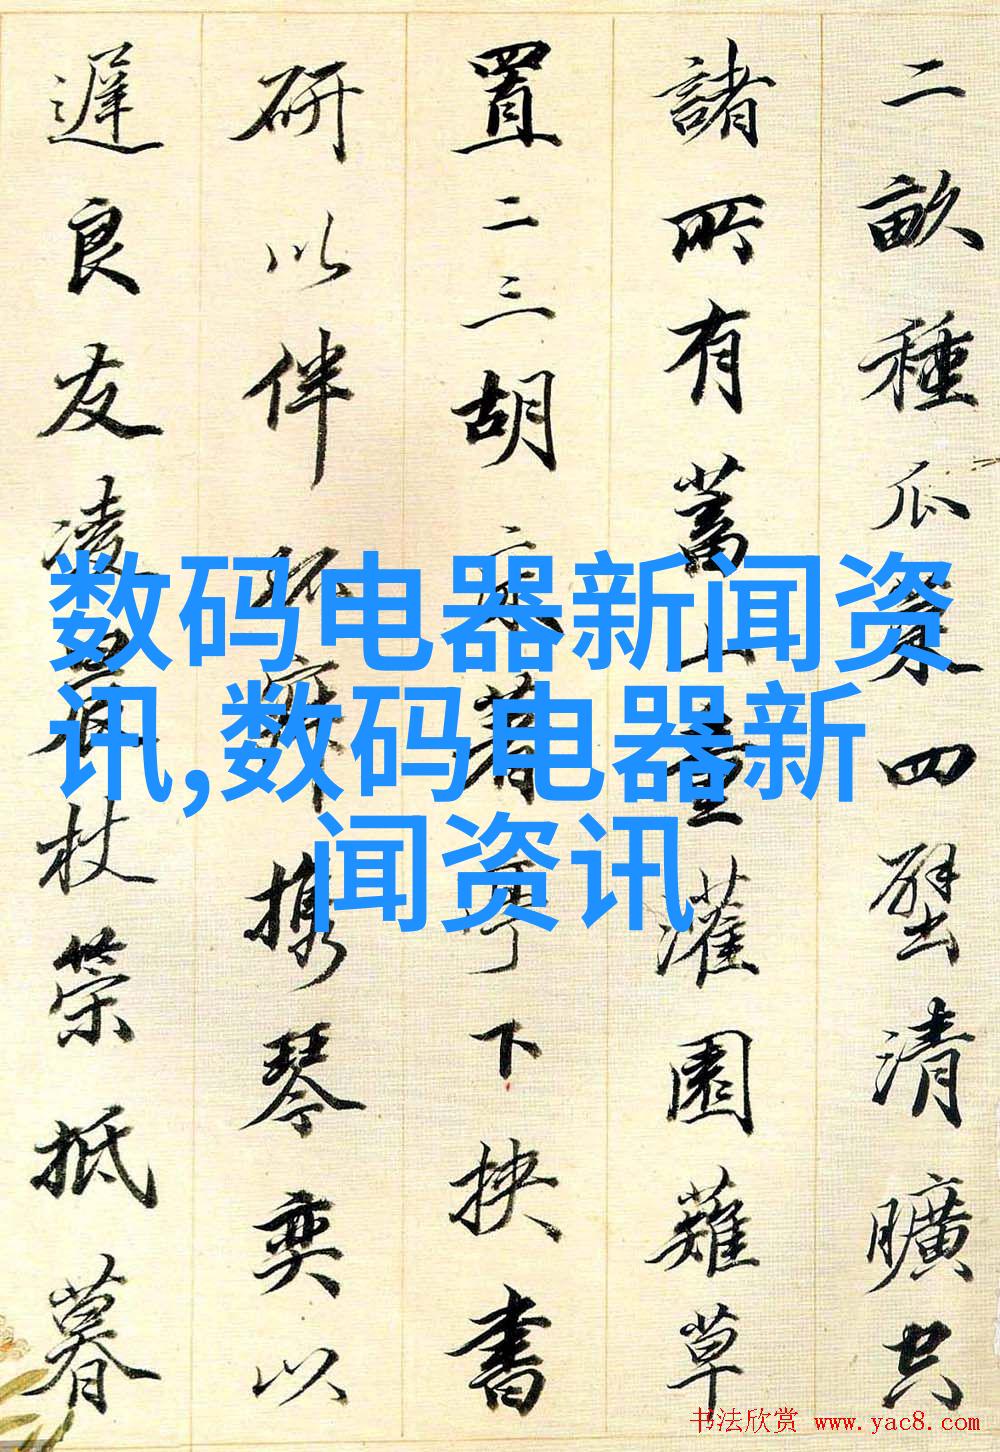 二畝種瓜菜四壁清曠空
諸所有蓄山童灌園薙草
置二三胡床著亭下挟書
研以伴孤寂携琴奕以
遲良友凌晨杖策抵暮
数码电器新闻资
讯,数码电器新
闻资讯
书法欣赏 www.yac8.com